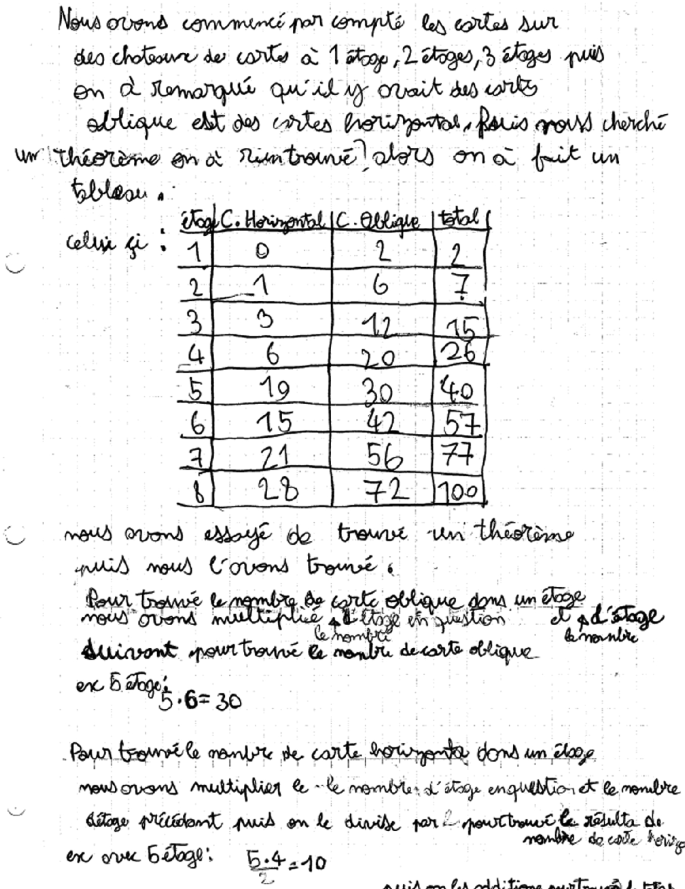 Nous avons commencé par compté les cartes sur
des chateaux de cartes à 1 étage, 2 étages, 3 étages puis
on à remarqué qu'il y avait des carte
oblique est des cartes horizontal. Puis nous cherché
un théorème on à rien trouvé, alors on à fait un
tableau.
celui çi :
étage C. Horizontal C. Oblique total
1 0 2 2
2 1 6 7
3 3 12 15
4 6 20 26
5 19 30 40
6 15 42 57
7 21 56 77
8 28 72 100
nous avons essayé de trouvé un théorème
puis nous l'avons trouvé.
Pour trouvé le nombre de carte oblique dans un étage
nous avons multiplié le nombre d'étage en question et le nombre d'étage
suivant pour trouvé le nombre de carte oblique
ex 5 étage :
5.6=30
Pour trouvé le nombre de carte horizonta dans un étage
nous avons multiplier le le nombre d'étage en question et le nombre
détage précédant puis on le divise par 2 pour trouvé le résulta de
nombre de carte horizo
ex avec 5 étage : 5.4/2=10
puis on les additione pour trouvé le total